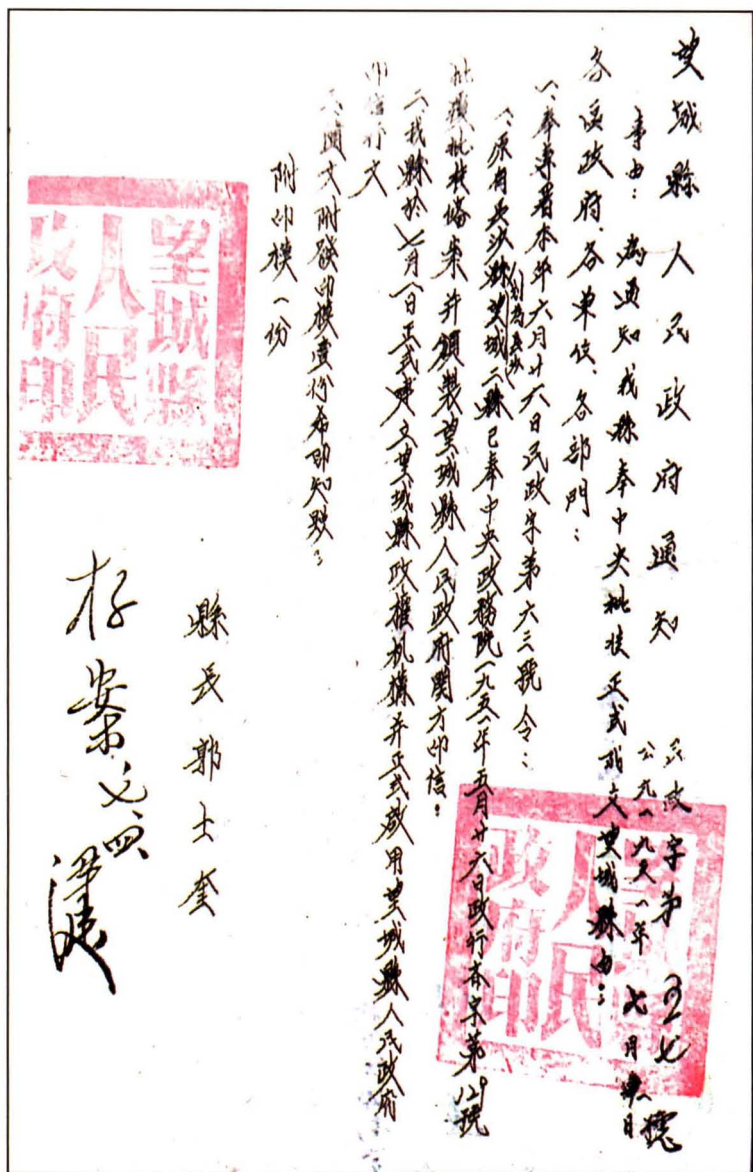 望城縣人民政府通知
民政字第 號
公元一九五一年七月 日
事由：為通知我縣奉中央批准正式成立望城縣由：
各區政府、各單位、各部門：
一、奉專署本年六月廿六日民政字第六三號令：
（、原有長沙縣劃為長沙望城二縣已奉中央政務院一九五一年五月廿六日政行齐字第129號
批復批准備案并頒製望城縣人民政府關方印信。
二、我縣於七月一日正式成立望城縣政權机構并正式啟用望城縣人民政府
印信行文
三、隨文附發印模壹份希即知照。
附印模一份
縣長郭士奎
存案 七、四
望城縣
人民
政府印
望城縣
人民
政府印